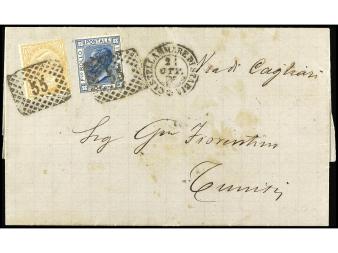 55
POSTALE
CASTELLAMMARE DI STABIA
2
OTT
Via di Cagliari
Sig Gm Fiorentini
Tunisi